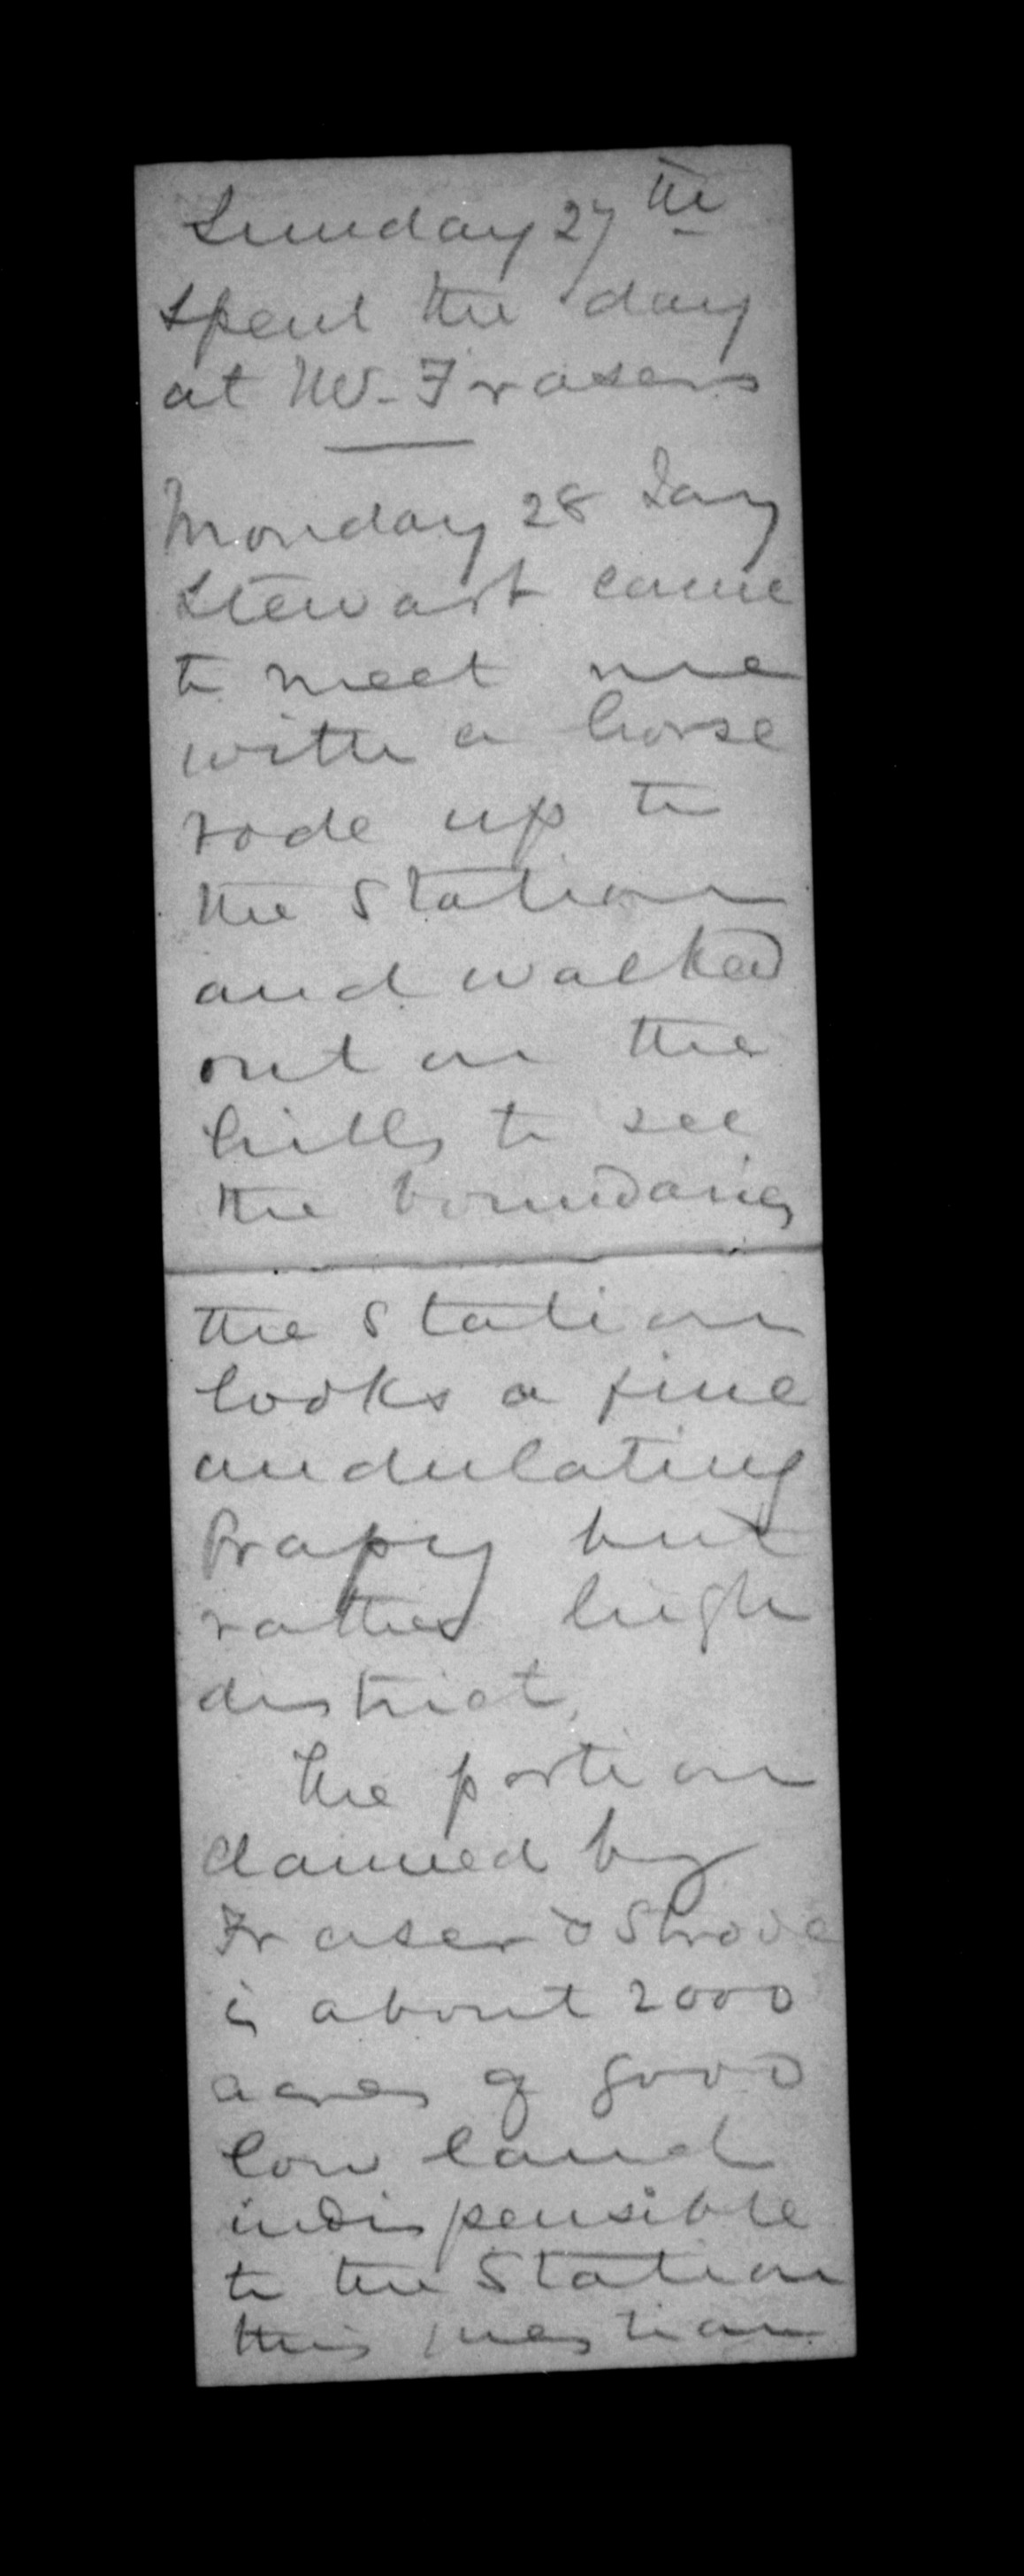 Sunday 27th
spent the day
at Mr. Frasers
Monday 28 Jany
Stewart came
to meet me
with a horse
rode up to
the Station
and walked
out on the
hills to see
the boundaries
the Station
looks a fine
undulating
but
rather high
district,
The portion
claimed by
Fraser &
is about 2000
acres of good
low land
indispensible
to the Station
this question